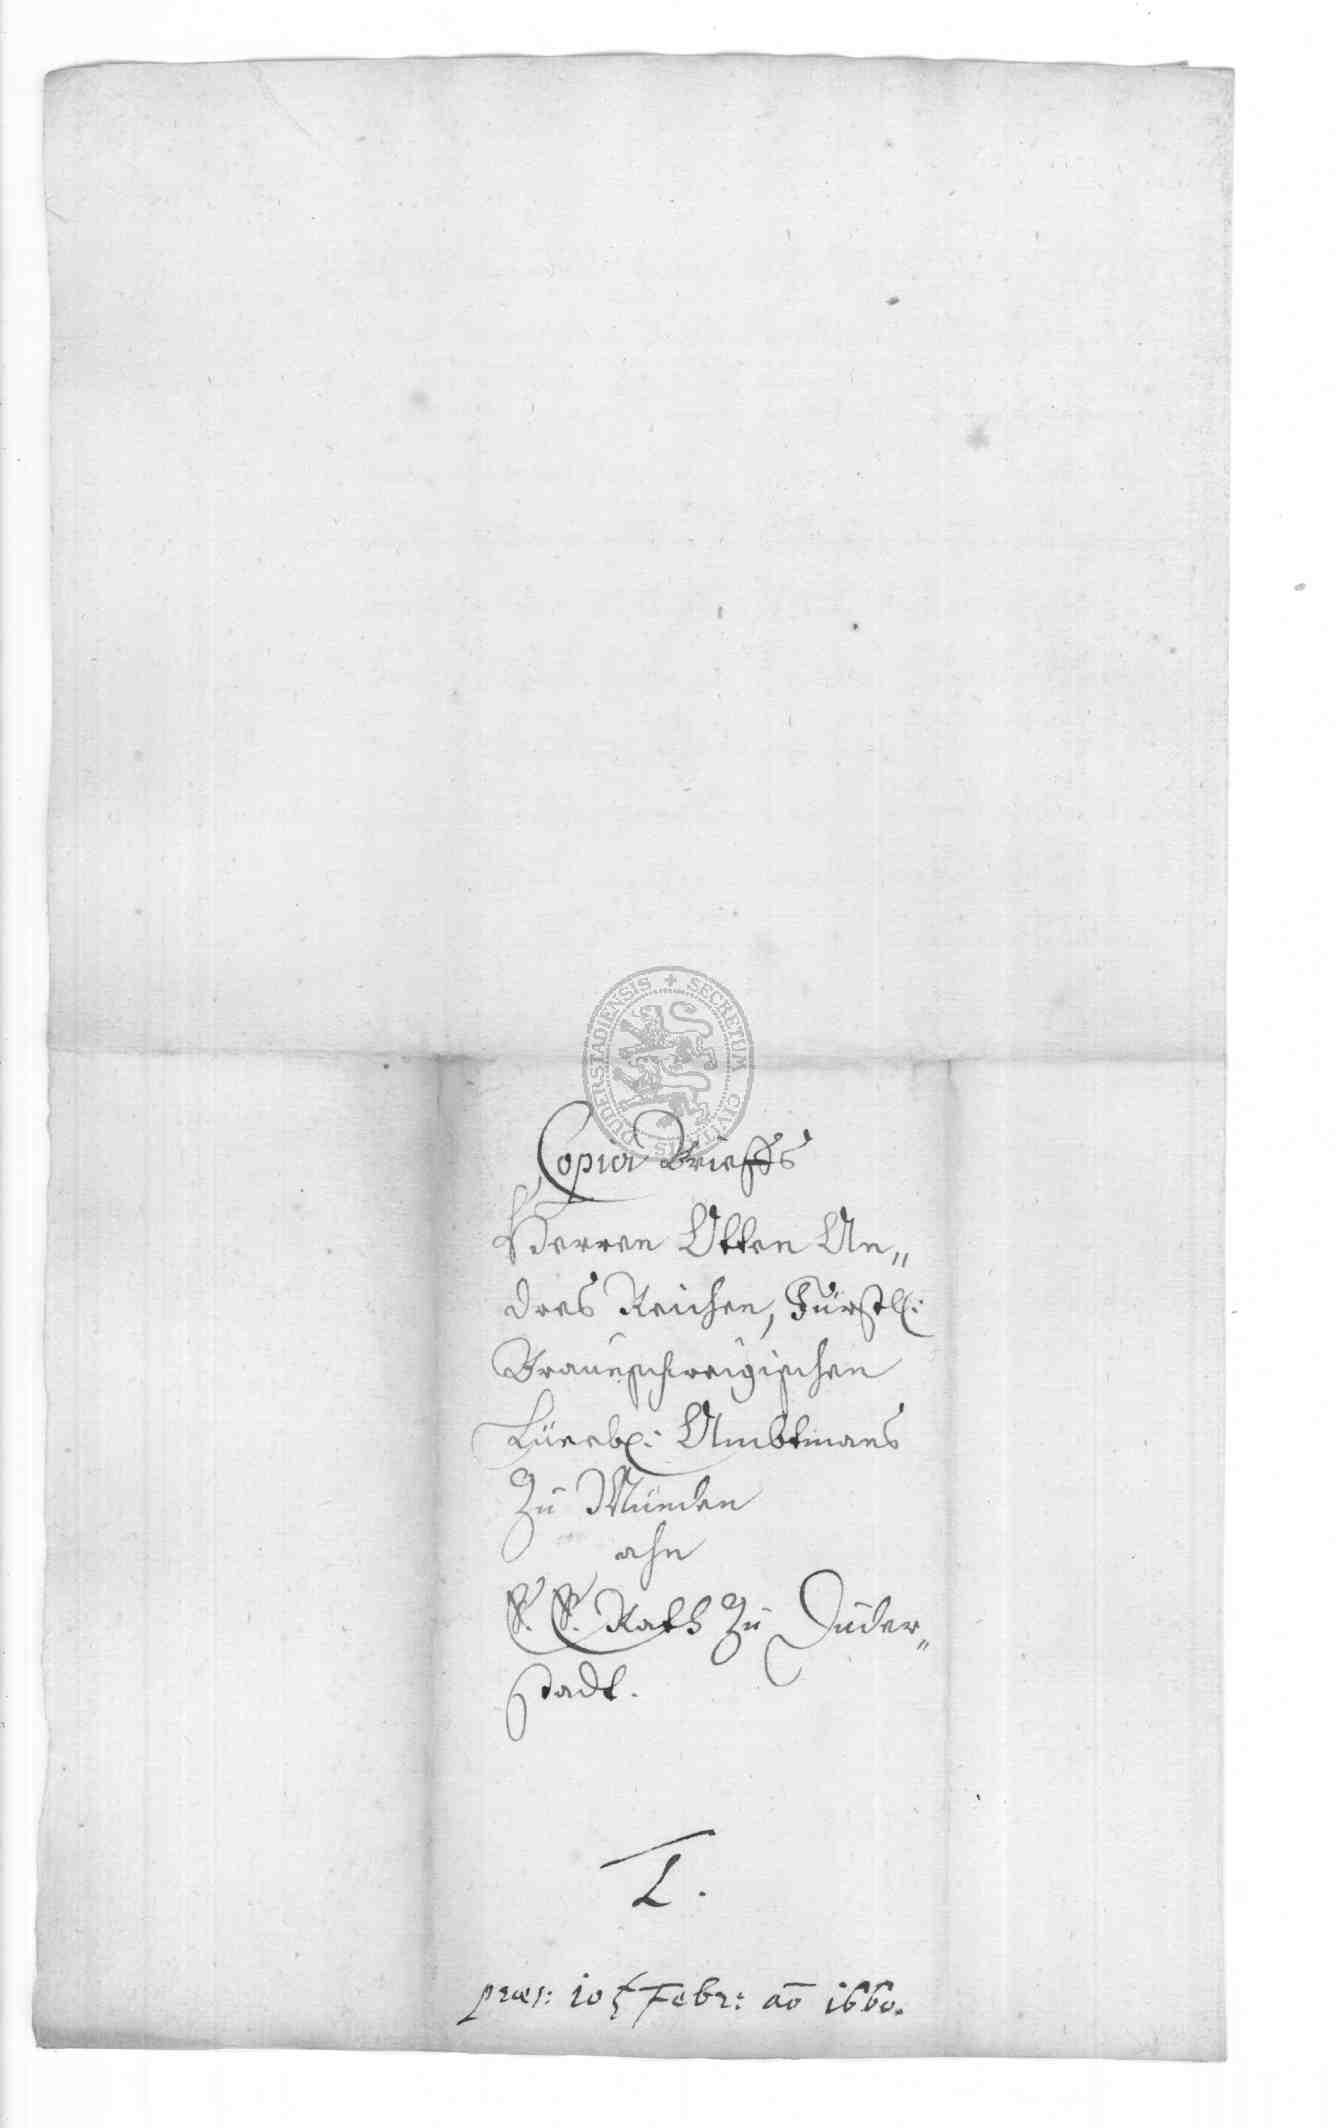 SECRETUM CIVITATIS DUDERSTADIENSIS
Copia Brieffs
Herren Otten An„
dres Reichen, Fürstl:
Braunschweigischen
Lüneb: Ambtmans
Zu Münden
ahn
E. E. Rath Zu Duder„
stadt.
præs: 10 Febr: ao 1660.